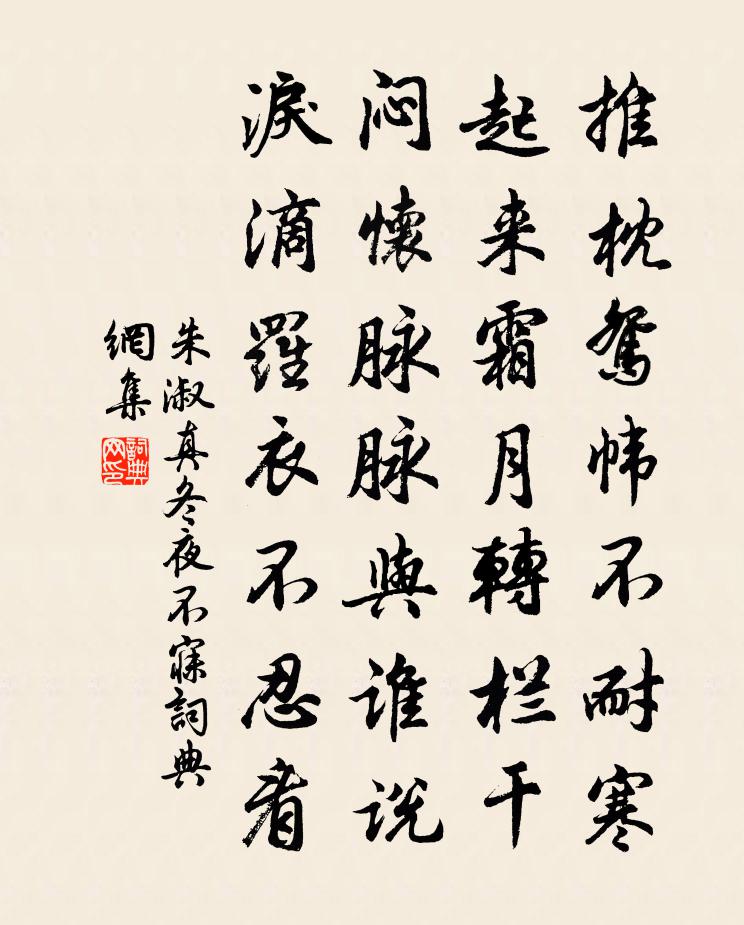 推枕鸳帏不耐寒
起来霜月轉栏干
闷懷脉脉與谁说
淚滴羅衣不忍看
朱淑真冬夜不寐詞典
網集
詞典网印